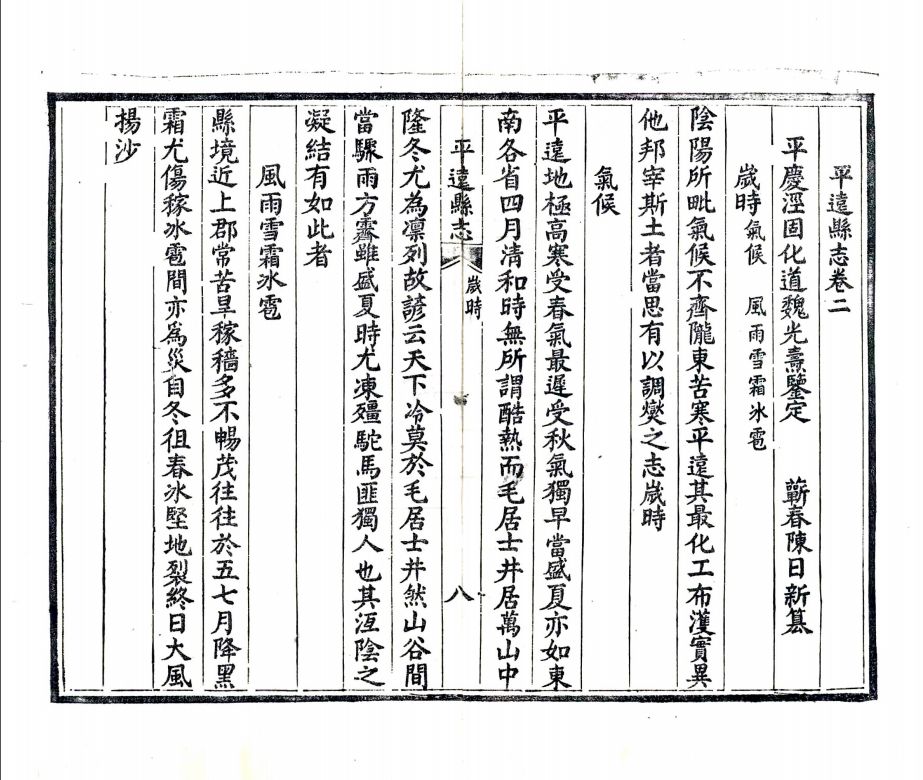 平遠縣志卷二
平慶涇固化道魏光燾鑒定 蘄春陳日新篡
歲時 氣候 風雨雪霜冰雹
陰陽所毗氣候不齊隴東苦寒平遠其最化工布濩實異
他邦宰斯土者當思有以調燮之志歲時
氣候
平遠地極高寒受春氣最遲受秋氣獨早當盛夏亦如東
南各省四月清和時無所謂酷熱而毛居士井居萬山中
平遠縣志 歲時 八
隆冬尤為凛列故諺云天下冷莫於毛居士井然山谷間
當驟雨方霽雖盛夏時尤凍殭駝馬匪獨人也其沍陰之
凝結有如此者
風雨雪霜冰雹
縣境近上郡常苦旱稼穡多不暢茂往往於五七月降黑
霜尤傷稼冰雹間亦為災自冬徂春冰堅地裂終日大風
揚沙